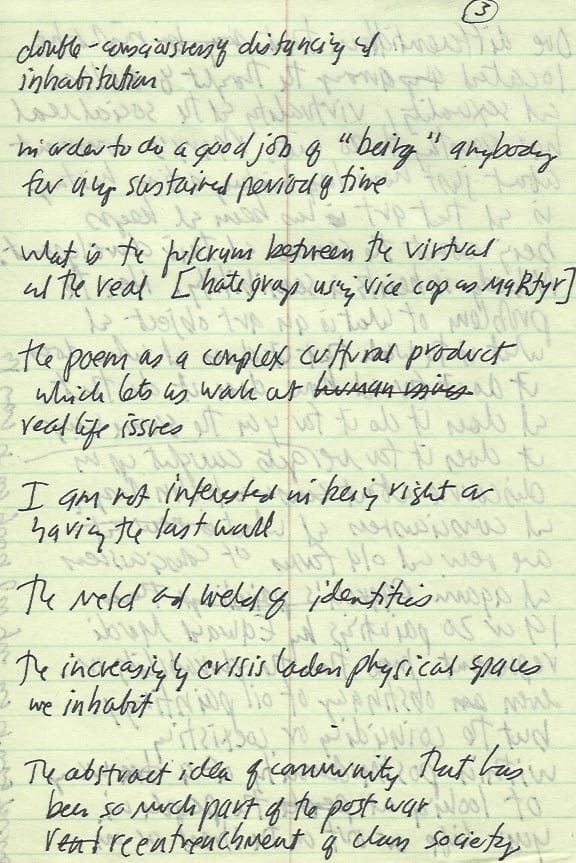 3
double-consciousness distancing of
inhabitation
in order to do a good job of "being" anybody
for any sustained period of time
what is the fulcrum between the virtual
and the real [ hate group using vice cop as martyr ]
the poem as a complex cultural product
which lets us work at human
real life issues
I am not interested in being right or
having the last word
the meld and weld of identities
the increasingly crisis laden physical spaces
we inhabit
The abstract idea of community that has
been so much part of the post war
reentrenchment of class society